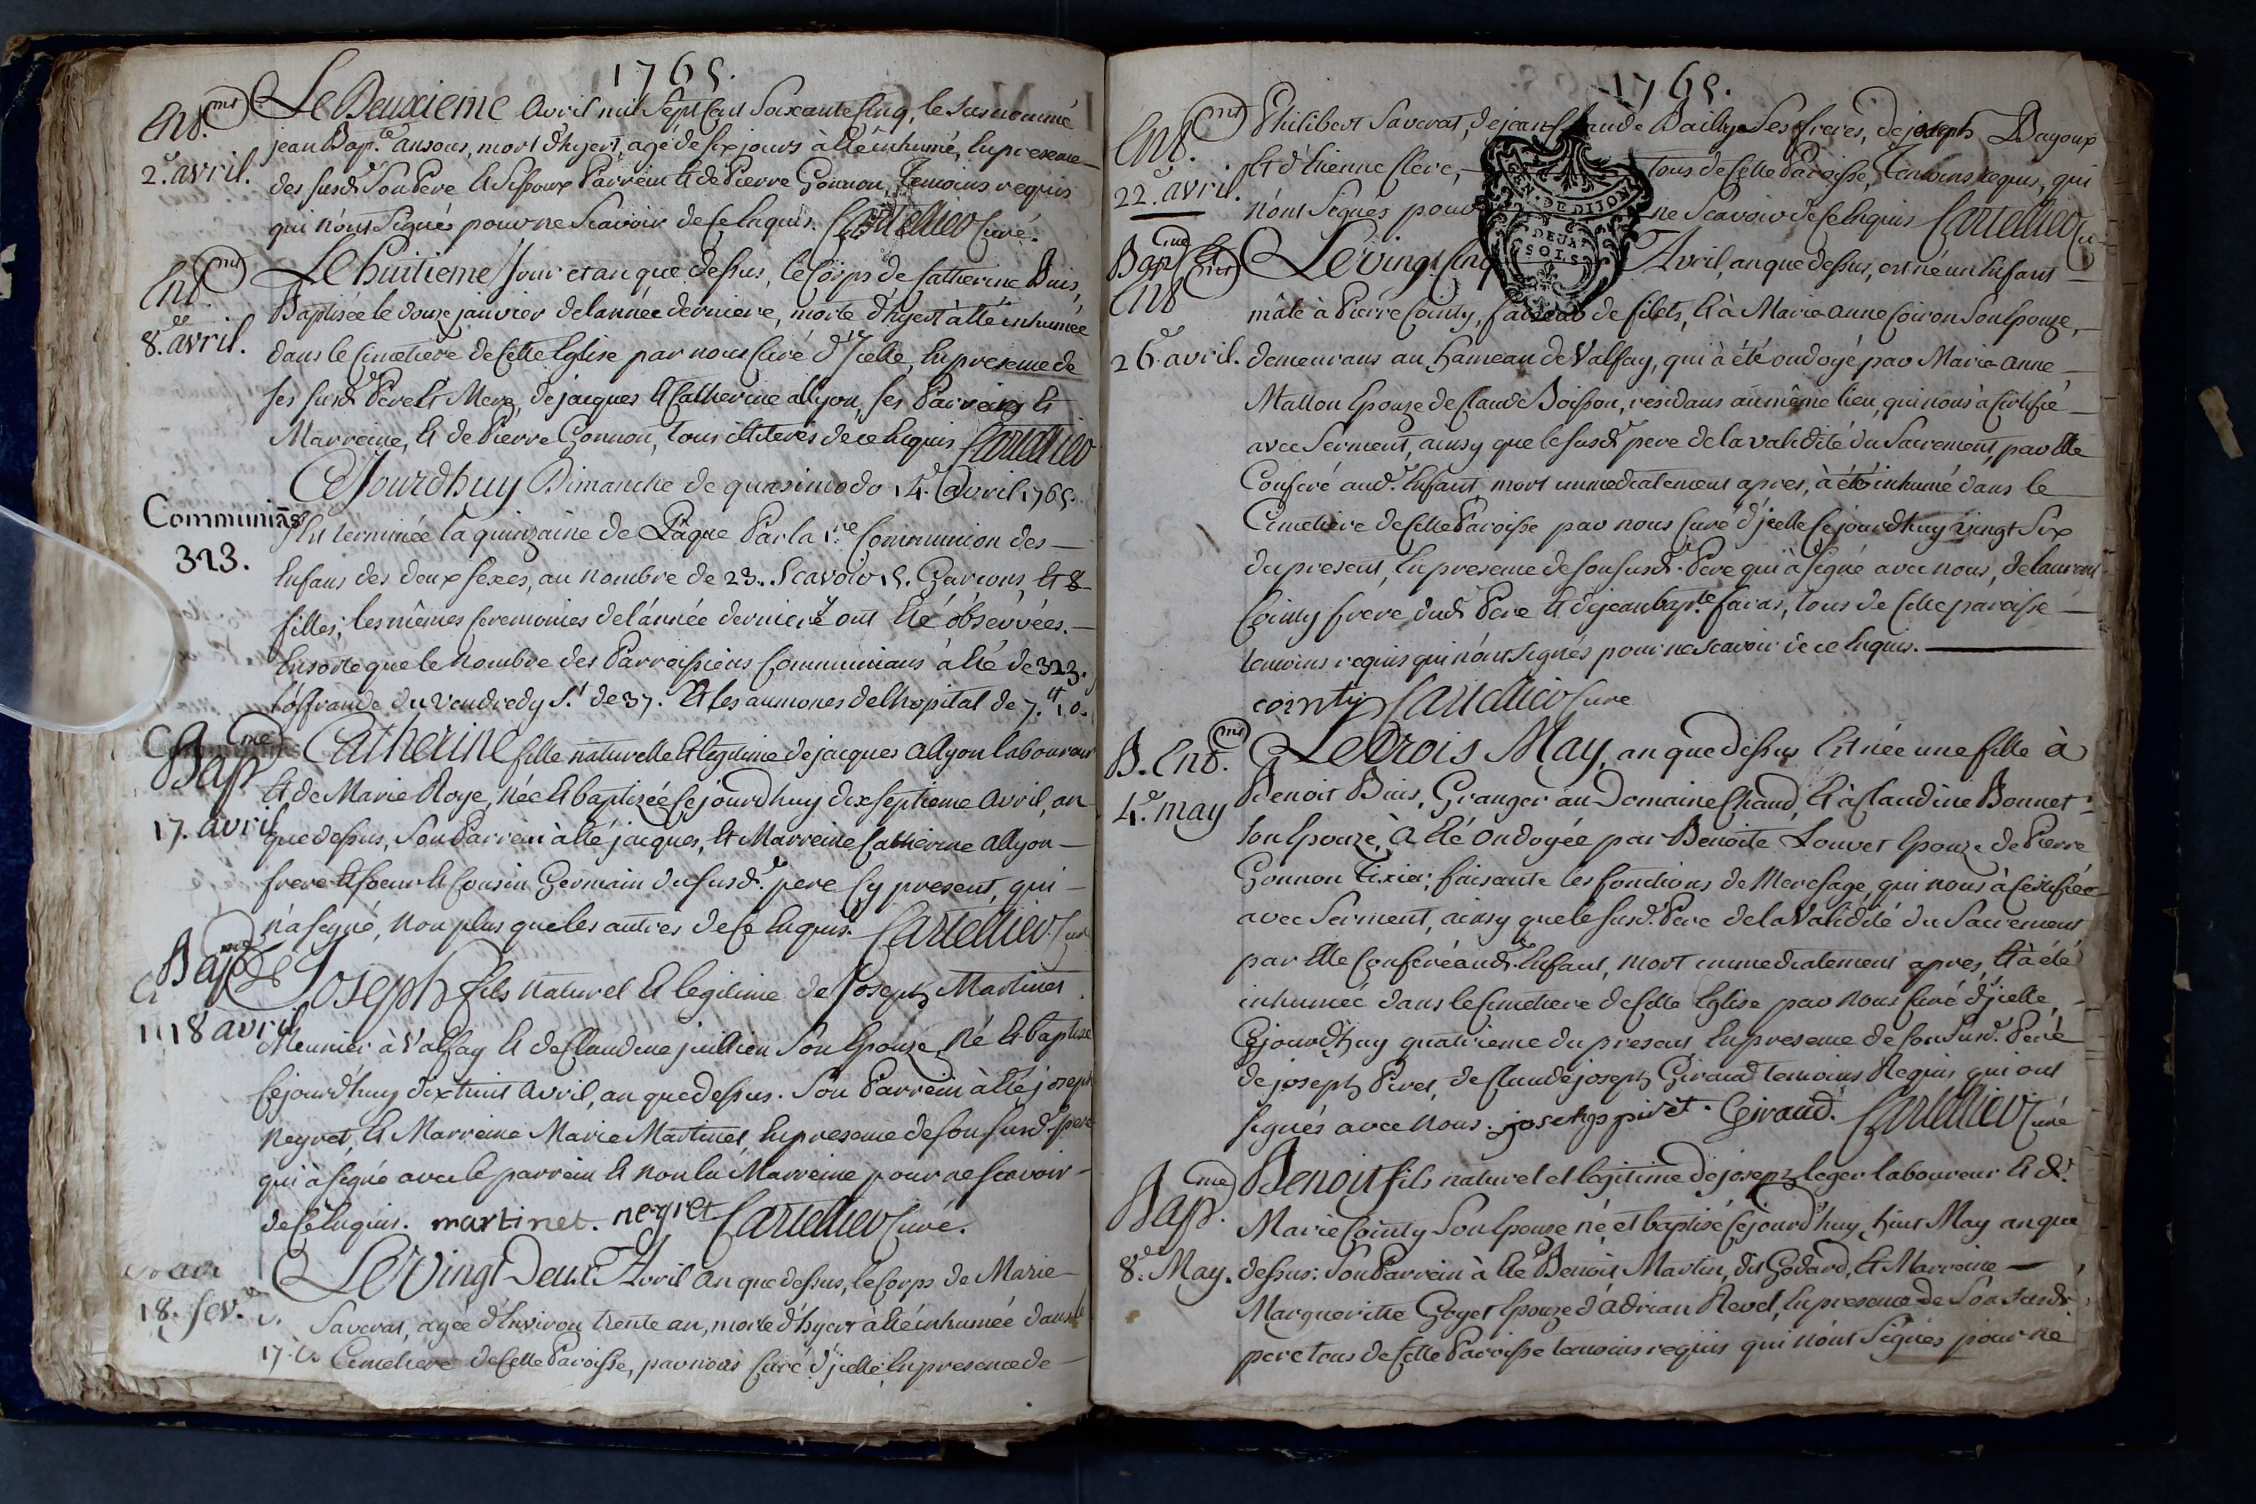 1765.
Ent.mt
2.e avril.
Le Deuxieme avril mil Sept Cent Soixante Cinq, le susnommé
jean Bap.te ansous, mort d'hyert, agé de six jours à été inhumé, En presence
des susd. Son Pere Et Sipoux Parrein Et de Pierre Gonnon, Temoins requis
qui n'ont Signés pour ne Scavoir de Ce Enquis. Cartellier Curé.
Ent.mt
8.e avril.
Le huitieme Jour et an que dessus, le Corps de Catherine Buis,
Baptisée le douze janvier de l'année derniere, morte d'hyert à été inhumée
dans le Cimetiere de Cette Eglise par nous Curé d'Icelle, En presence de
ses susd. Pere Et Mere, de jacques Et Catherine allyon, ses Parrein Et
Marreine, Et de Pierre Gonnon, tous illiterés de ce Enquis Cartellier
Communiãs
323.
Cejourdhuy Dimanche de quasimodo 14.e avril 1765.
Est terminée la quinzaine de Pâque Par la 1.re Communion des
Enfans des deux sexes, au nombre de 23. Scavoir 15. Garcons, Et 8
filles, les mêmes Ceremonies de l'année derniere ont Eté observées.
Ensorte que le nombre des Parroissiens Communians à Eté de 323.
l'offrande du Vendredy S.t de 37. Et les aumones de l'hopital de 7.tt 10.
Bap.me
17. avril
Catherine fille naturelle Et legitime de jacques allyon laboureur
Et de Marie Roye, née Et baptisée Cejourdhuy dixseptieme avril, an
que dessus, Son Parrein à Eté jacques, Et Marreine Catherine allyon
frere Et soeur Et Cousin Germain du susd. pere Cy present, qui
n'a signé, non plus que les autres de Ce Enquis. Cartellier Curé
Bap.me
18 avril
Joseph fils naturel Et legitime de Joseph Martinet
Meunier à Valfay Et de Claudine juillien Son Epouse, Né Et baptisé
Cejourd'huy dixhuit avril, an que dessus. Son Parrein à Eté joseph
Neyret, Et Marreine Marie Martinet, En presence de son susd. pere
qui à signé avec le parrein Et non la Marreine pour ne scavoir
de Ce Enquis. martinet. negret Cartellier Curé.
18. fev.
17.
Le Vingt Deux Avril an que dessus, le Corps de Marie
Saverat, agée d'Environ trente an, morte d'hyert à été inhumée dans le
Cimetiere de Cette Paroisse, par nous Curé d'jcelle, En presence de
1765.
Ent.mt
22.e avril.
Philibert Saverat, de jean Claude Bailly Ses freres, de joseph Bayoux
Et d'Etienne Clerc, tous de Cette Paroisse, Temoins requis, qui
n'ont Signés pour ne Scavoir de Ce Enquis Cartellier Cu
GEN. DE DIJON
DEUX
SOLS
Bap.me Et
Ent.mt
26.e avril.
Le vingt Cinq Avril, an que dessus, est né un Enfant
mâle à Pierre Cointy, faiseur de filets, Et à Marie anne Coiron Son Epouze,
demeurans au hameau de Valfay, qui à été ondoyé par Marie anne
Mallon Epouze de Claude Boisson, residans au même lieu, qui nous à Certifié
avec Serment, ainsy que le susd. pere de la validité du Sacrement, par Elle
Conferé aud. Enfant, mort immediatement apres, à été inhumé dans le
Cimetiere de Cette Paroisse par nous Curé d'jcelle Cejourdhuy vingt Six
du present, En presence de son susd. Pere qui à signé avec nous, de laurent
Cointy frere dud. Pere Et de jean bap.te faras, tous de Cette paroisse
temoins requis qui n'ont signés pour ne scavoir de ce Enquis.
cointy Cartellier Curé
B. Ent.mt
4.e may
Le Trois May, an que dessus Est née une fille à
Benoit Buis, Granger au Domaine Chaud, Et à Claudine Bonnet
son Epouze, à Eté ondoyée par Benoite Louvet Epouze de Pierre
Gonnon Tixier, faisante les fonctions de Mere sage, qui nous à Certifiée
avec Serment, ainsy que le susd. Pere de la Validité du Sacrement
par Elle Conferé aud. Enfant, mort immediatement apres, Et à été
inhumeé dans le Cimetiere de Cette Eglise par nous Curé d'jcelle,
Cejourd'huy quatrieme du present En presence de son susd. Pere
de joseph Piret, de Claude joseph Giraud temoins Requis qui ont
signés avec nous. josehp piret. Geiraud. Cartellier Curé
Bap.me
8.e May.
Benoit fils naturel et legitime de joseph leger laboureur Et d.
Marie Cointy Son Epouze né, et baptisé Cejourd'huy huit May an que
dessus: Son Parrein à Eté Benoit Martin, dit Godard, Et Marreine
Margueritte Goyet Epouze d'Adrian Revel, En presence de Son susd.
pere tous de Cette Paroisse temoins requis qui n'ont Signés pour ne